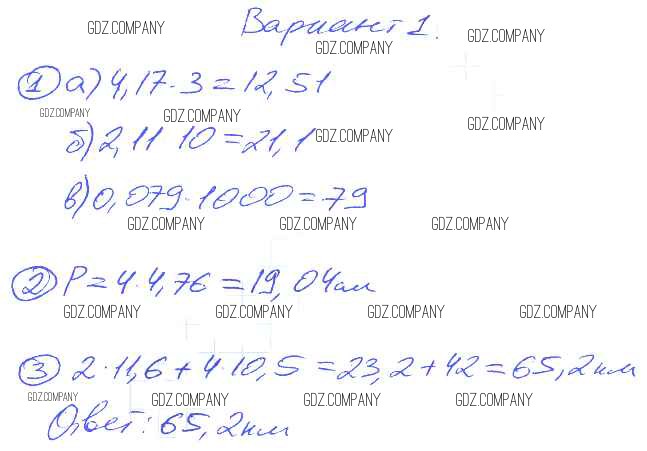 GDZ.COMPANY Вариант 1. GDZ.COMPANY
GDZ.COMPANY
1 а) 4,17·3=12,51
GDZ.COMPANY GDZ.COMPANY GDZ.COMPANY
б) 2,11 10=21,1 GDZ.COMPANY
в) 0,079·1000=79
GDZ.COMPANY GDZ.COMPANY GDZ.COMPANY
2 P=4·4,76=19,04см
GDZ.COMPANY GDZ.COMPANY GDZ.COMPANY GDZ.COMPANY
3 2·11,6+4·10,5=23,2+42=65,2км
GDZ.COMPANY GDZ.COMPANY GDZ.COMPANY GDZ.COMPANY
Ответ: 65,2км